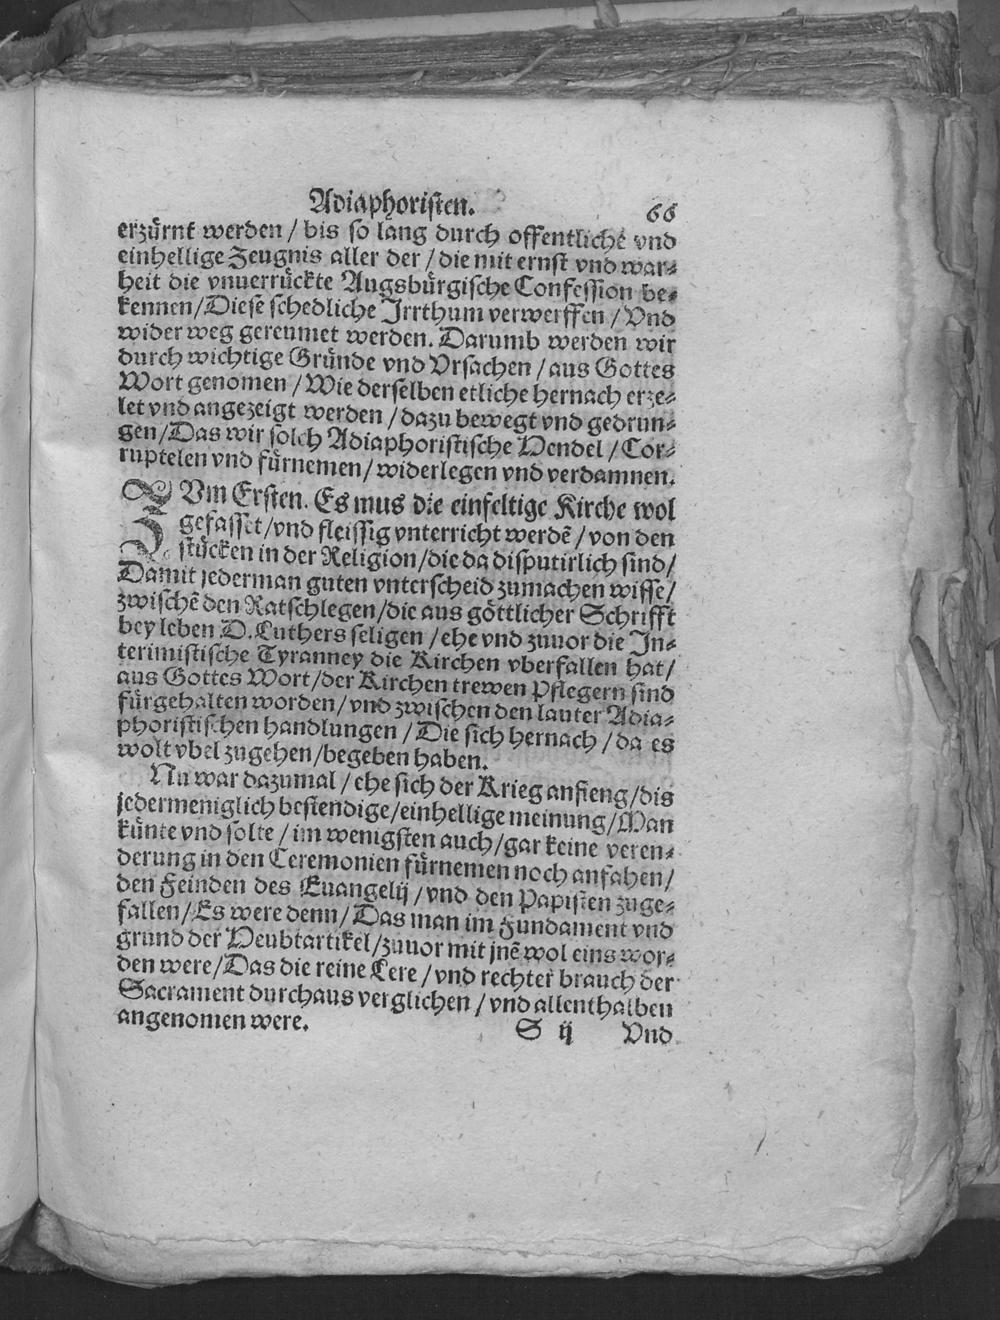 Adiaphoristen. 66
erzürnt werden / bis so lang durch offentliche vnd
einhellige Zeugnis aller der / die mit ernst vnd war⸗
heit die vnuerrückte Augsbürgische Confession be⸗
kennen / Diese schedliche Jrrthum verwerffen / Vnd
wider weg gereumet werden. Darumb werden wir
durch wichtige Gründe vnd Vrsachen / aus Gottes
Wort genomen / Wie derselben etliche hernach erze⸗
let vnd angezeigt werden / dazu bewegt vnd gedrun⸗
gen / Das wir solch Adiaphoristische Hendel / Cor⸗
ruptelen vnd fürnemen / widerlegen vnd verdamnen.
ZVm Ersten. Es mus die einfeltige Kirche wol
gefasset / vnd fleissig vnterricht werdẽ / von den
stücken in der Religion / die da disputirlich sind /
Damit jederman guten vnterscheid zumachen wisse /
zwischẽ den Ratschlegen / die aus göttlicher Schrifft
bey leben D. Luthers seligen / ehe vnd zuuor die Jn⸗
terimistische Tyranney die Kirchen vberfallen hat /
aus Gottes Wort / der Kirchen trewen Pflegern sind
fürgehalten worden / vnd zwischen den lauter Adia⸗
phoristischen handlungen / Die sich hernach / da es
wolt vbel zugehen / begeben haben.
Nu war dazumal / ehe sich der Krieg anfieng / dis
jedermeniglich bestendige / einhellige meinung / Man
künte vnd solte / im wenigsten auch / gar keine veren⸗
derung in den Ceremonien fürnemen noch anfahen /
den Feinden des Euangelij / vnd den Papisten zuge⸗
fallen / Es were denn / Das man im Fundament vnd
grund der Heubtartikel / zuuor mit jnẽ wol eins wor⸗
den were / Das die reine Lere / vnd rechter brauch der
Sacrament durchaus verglichen / vnd allenthalben
angenomen were.
S ij Vnd